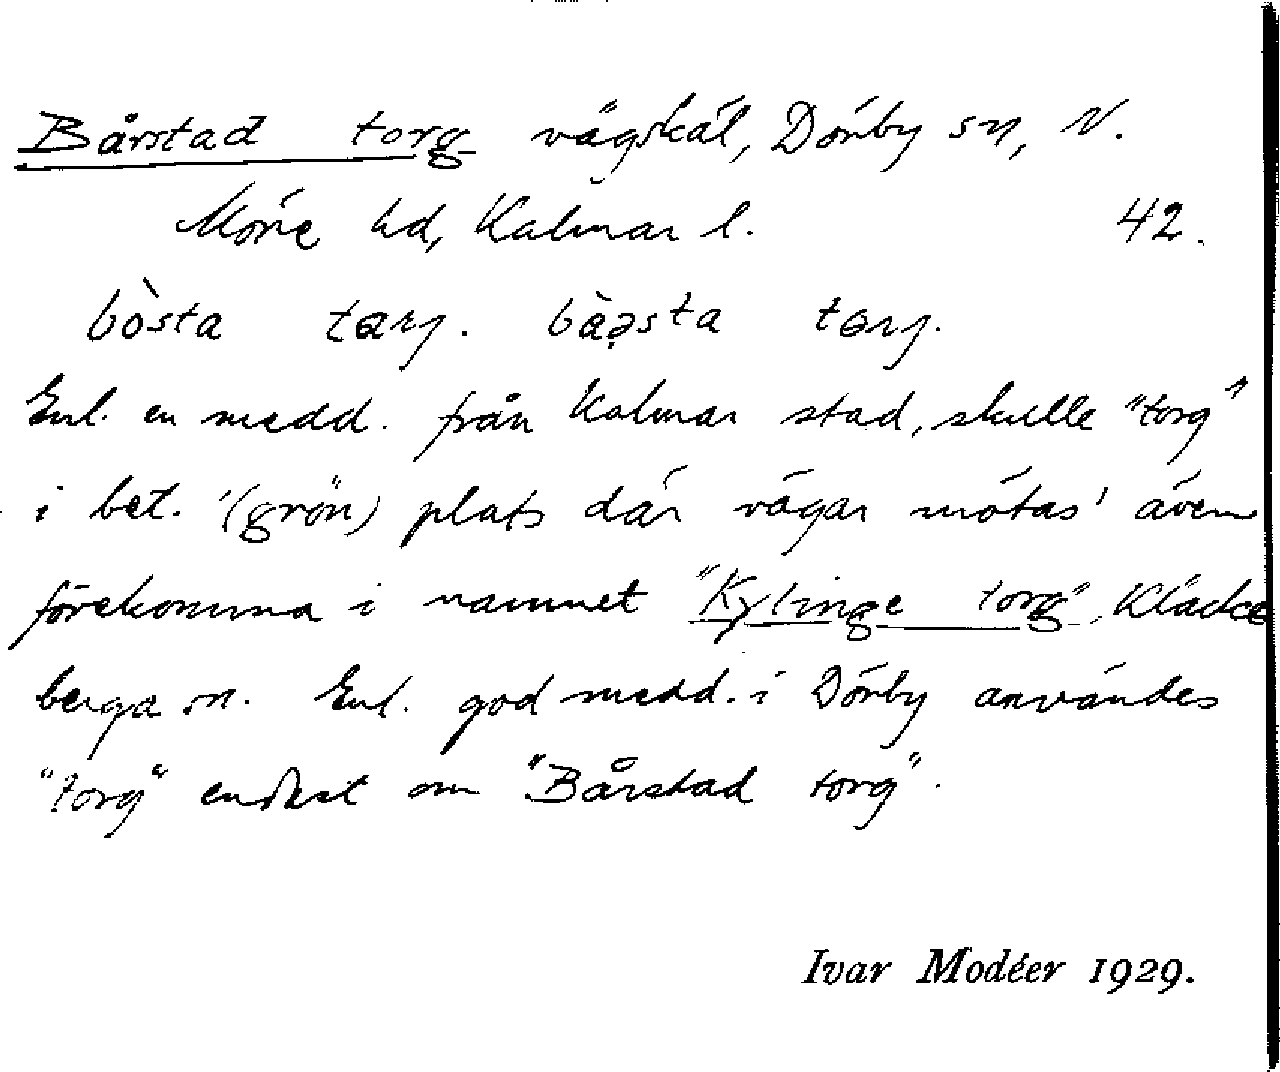 Bårstad torg vägskäl, Dörby sn, N.
Möre hd, Kalmar l. 42.
bòsta tarj. bàəsta tarj.
Enl. en medd. från Kalmar stad, skulle "torg"
i bet. '(grön) plats där vägar mötas' även
förekomma i namnet "Kylinge torg", Kläcke
berga sn. Enl. god medd. i Dörby användes
"torg" endast om "Bårstad torg".
Ivar Modéer 1929.